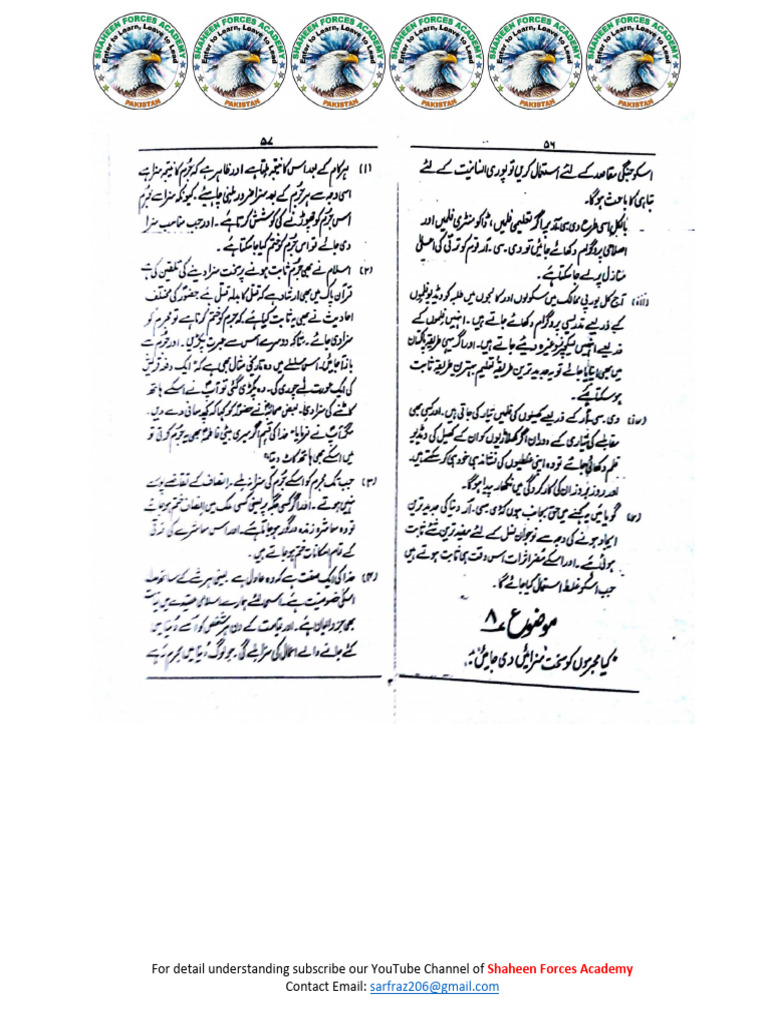 SHAHEEN FORCES ACADEMY
Enter to Learn, Leave to Lead
PAKISTAN
SHAHEEN FORCES ACADEMY
Enter to Learn, Leave to Lead
PAKISTAN
SHAHEEN FORCES ACADEMY
Enter to Learn, Leave to Lead
PAKISTAN
SHAHEEN FORCES ACADEMY
Enter to Learn, Leave to Lead
PAKISTAN
SHAHEEN FORCES ACADEMY
Enter to Learn, Leave to Lead
PAKISTAN
SHAHEEN FORCES ACADEMY
Enter to Learn, Leave to Lead
PAKISTAN
۵۶
اسکو جنگی مقاصد کے لئے استعمال کریں تو پوری انسانیت کے لئے
تباہی کا باعث ہوگا۔
بالکل اسی طرح وی سی آر پر اگر تعلیمی فلمیں، ڈاکومنٹری فلمیں اور
اصلاحی پروگرام دکھائے جائیں تو وی۔ سی۔ آر قوم کو ترقی کی اعلیٰ
منازل پر لے جا سکتا ہے۔
(iii) آج کل یورپی ممالک میں سکولوں اور کالجوں میں طلبہ کو ویڈیو فلموں
کے ذریعے تدریسی پروگرام دکھائے جاتے ہیں۔ انہیں فلموں کے
ذریعے انہیں لیکچرز وغیرہ دیئے جاتے ہیں۔ اور اگر یہی طریقہ پاکستان
میں بھی اپنایا جائے تو یہ جدید ترین طریقہ تعلیم بہترین طریقہ ثابت
ہو سکتا ہے۔
(iv) وی۔ سی۔ آر کے ذریعے کھیلوں کی فلمیں تیار کی جاتی ہیں۔ اور کسی بھی
مقابلے کی تیاری کے دوران اگر کھلاڑیوں کو ان کے کھیل کی ویڈیو
فلم دکھائی جائے تو وہ اپنی غلطیوں کی نشاندہی خود ہی کر سکتے ہیں۔
اور روز بروز ان کی کارکردگی میں نکھار پیدا ہوگا۔
(v) گویا میں یہ کہنے میں حق بجانب ہوں کہ وی۔ سی۔ آر دنیا کی جدید ترین
ایجاد ہونے کی وجہ سے نوجوان نسل کے لئے مفید ترین شے ثابت
ہوئی ہے۔ اور اسکے مضر اثرات اس وقت ہی ثابت ہوتے ہیں
جب اسکو غلط استعمال کیا جائے گا۔
موضوع ۸
"کیا مجرموں کو سخت سزائیں دی جائیں"؟
۵۷
(۱) ہر کام کے بعد اس کا نتیجہ ملتا ہے اور ظاہر ہے کہ جرم کا نتیجہ سزا ہے
اسی وجہ سے ہر جرم کے بعد سزا ضرور ملنی چاہئے۔ کیونکہ سزا سے مجرم
اس جرم کو چھوڑنے کی کوشش کرتا ہے۔ اور جب مناسب سزا
دی جائے تو اس جرم کو ختم کیا جا سکتا ہے۔
(۲) اسلام نے بھی جرم ثابت ہونے پر سخت سزا دینے کی تلقین کی ہے
قرآن پاک میں بھی ارشاد ہے کہ قتل کا بدلہ قتل ہے حضورؐ کی مختلف
احادیث نے بھی یہ ثابت کیا ہے کہ جرم کو ختم کرنا ہے تو مجرم کو
سزا دی جائے۔ تاکہ دوسرے اس سے عبرت پکڑیں۔ اور جرم سے
باز آ جائیں۔ اس سلسلے میں وہ تاریخی مثال بھی ہے کہ ایک دفعہ قریش
کی ایک عورت نے چوری کی۔ وہ پکڑی گئی تو آپؐ نے اسکے ہاتھ
کاٹنے کی سزا دی۔ بعض صحابہؓ نے حضورؐ کو کہا کہ کچھ معافی دے دیں۔
مگر آپؐ نے فرمایا "خدا کی قسم اگر میری بیٹی فاطمہؓ بھی یہ جرم کرتی تو
میں اسکے بھی ہاتھ کاٹ دیتا"
(۳) جب تک مجرم کو اسکے جرم کی سزا نہ ملے۔ انصاف کے تقاضے پورے
نہیں ہوتے۔ اور اگر کسی جگہ پر یعنی کسی ملک میں انصاف ختم ہو جائے
تو وہ معاشرہ زندہ درگور ہو جاتا ہے۔ اور اس معاشرے کی ترقی
کے تمام امکانات ختم ہو جاتے ہیں۔
(۴) خدا کی ایک صفت ہے کہ وہ عادل ہے۔ یعنی ہر شے کے ساتھ عدل
اسکی خصوصیت ہے۔ اسی لئے ہمارے اسلامی عقیدے میں یہ
بھی جزو ایمان ہے۔ اور قیامت کے دن ہر شخص کو اسے دنیا میں
کئے جانے والے اعمال کی سزا ملے گی۔ جو لوگ دنیا میں مجرم رہے
For detail understanding subscribe our YouTube Channel of Shaheen Forces Academy
Contact Email: sarfraz206@gmail.com